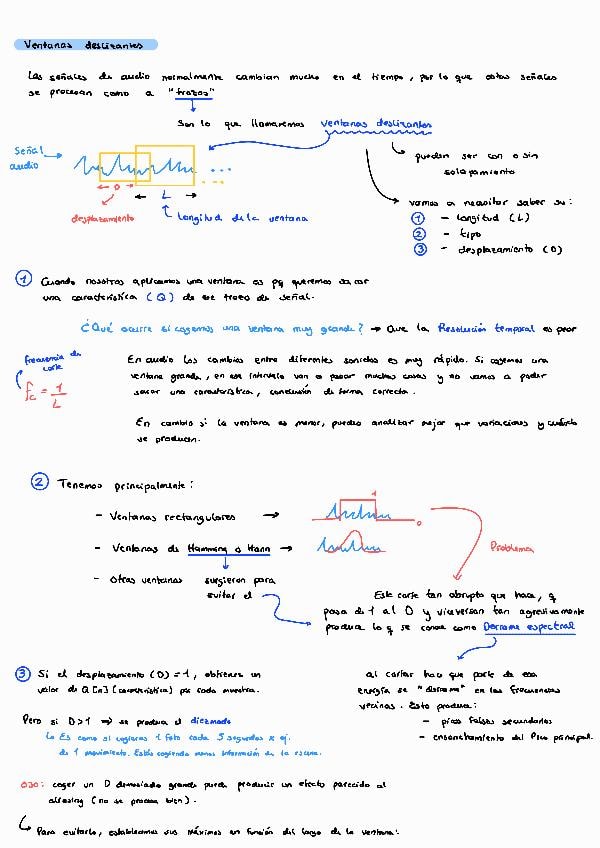 Ventanas deslizantes
Las señales de audio normalmente cambian mucho en el tiempo, por lo que estas señales
se procesan como a "trozos"
Son lo que llamaremos ventanas deslizantes
Señal
audio
...
D
L
desplazamiento
Longitud de la ventana
pueden ser con o sin
solapamiento
vamos a necesitar saber su:
① - longitud (L)
② - tipo
③ - desplazamiento (D)
① Cuando nosotros aplicamos una ventana es pq queremos sacar
una característica (Q) de ese trozo de señal.
¿Qué ocurre si cogemos una ventana muy grande? → Que la Resolución temporal es peor
frecuencia de
corte
fc = 1/L
En audio los cambios entre diferentes sonidos es muy rápido. Si cogemos una
ventana grande, en ese intervalo van a pasar muchas cosas y no vamos a poder
sacar una característica, conclusión de forma correcta.
En cambio si la ventana es menor, puedes analizar mejor que variaciones y cuánto
se producen.
② Tenemos principalmente:
- Ventanas rectangulares →
1
0
- Ventanas de Hamming o Hann →
Problema
- Otras ventanas
surgieron para
evitar el
Este corte tan abrupto que hace, q
pasa de 1 al 0 y viceversa tan agresivamente
produce lo q se conoce como Derrame espectral
③ Si el desplazamiento (D) = 1, obtienes un
valor de Q[n] (característica) por cada muestra.
Pero si D>1 ⇒ se produce el diezmado
Es como si cogieras 1 foto cada 5 segundos x ej.
de 1 movimiento. Estás cogiendo menos información de la escena.
al cortar hace que parte de esa
energía se "derrame" en las frecuencias
vecinas. Esto produce:
- picos falsos secundarios
- ensanchamiento del Pico principal.
OJO: coger un D demasiado grande puede producir un efecto parecido al
aliasing (no se procesa bien).
Para evitarlo, establecemos sus máximos en función del largo de la ventana: